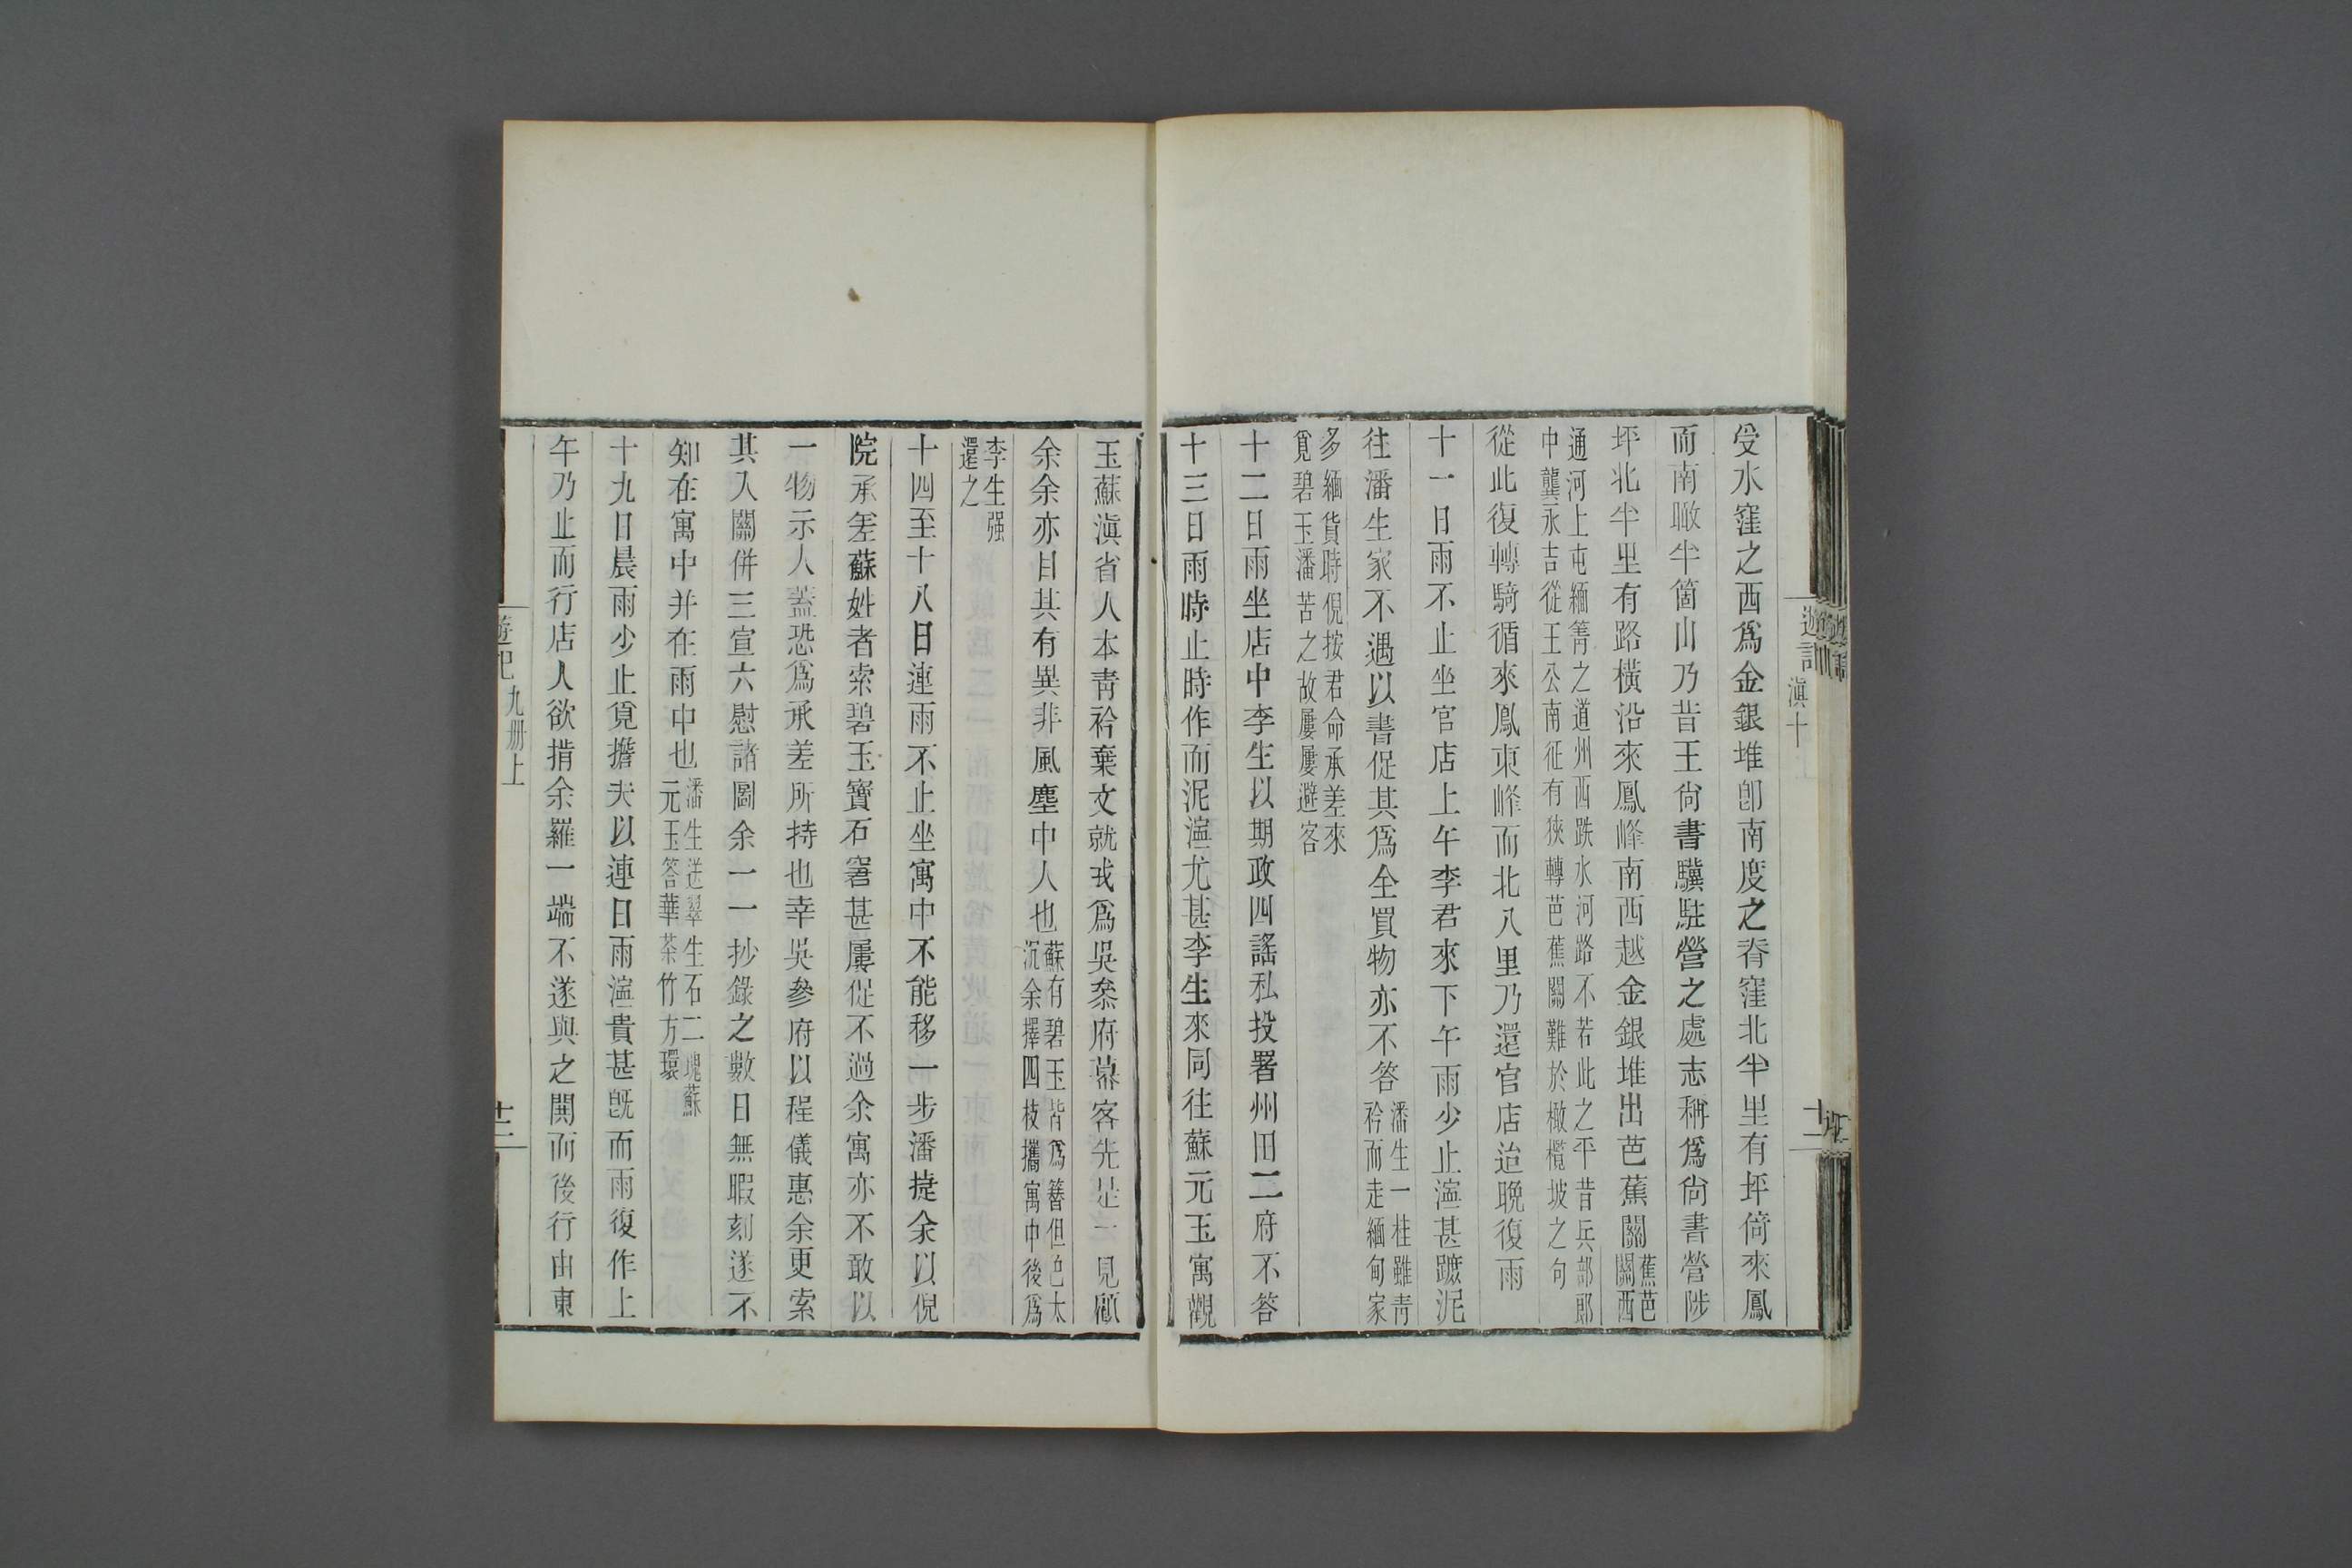 受水窪之西爲金銀堆卽南度之脊窪北半里有坪倚來鳳
而南瞰半箇山乃昔王尙書驥駐營之處志稱爲尙書營陟
坪北半里有路橫沿來鳳峰南西越金銀堆出芭蕉關蕉芭關西
通河上屯緬箐之道州西跌水河路不若此之平昔兵部郞
中龔永吉從王公南征有狹轉芭蕉關難於橄欖坡之句
從此復轉騎循來鳳東峰而北八里乃還官店迨晚復雨
十一日雨不止坐官店上午李君來下午雨少止濕甚蹠泥
往潘生家不遇以書促其爲全買物亦不答潘生一桂雖靑
衿而走緬甸家
多緬貨時倪按君命承差來
覓碧玉潘苦之故屢屢避客
十二日雨坐店中李生以期政四謠私投署州田二府不答
十三日雨時止時作而泥濕尤甚李生來同往蘇元玉寓觀
遊記
滇十
十一
玉蘇滇省人本靑衿棄文就戎爲吳叅府幕客先是一見顧
余余亦目其有異非風塵中人也蘇有碧玉皆爲簪但色太
沉余擇四枝攜寓中後爲
李生强
還之
十四至十八日連雨不止坐寓中不能移一步潘捷余以倪
院承差蘇姓者索碧玉寶石窘甚屢促不過余寓亦不敢以
一物示人蓋恐爲承差所持也幸吳參府以程儀惠余更索
其入關併三宣六慰諸圖余一一抄錄之數日無暇刻遂不
知在寓中并在雨中也潘生送翠生石二塊蘇
元玉答華茶竹方環
十九日晨雨少止覓擔夫以連日雨濕貴甚旣而雨復作上
午乃止而行店人欲揹余羅一端不遂與之閧而後行由東
遊記
九册上
十二